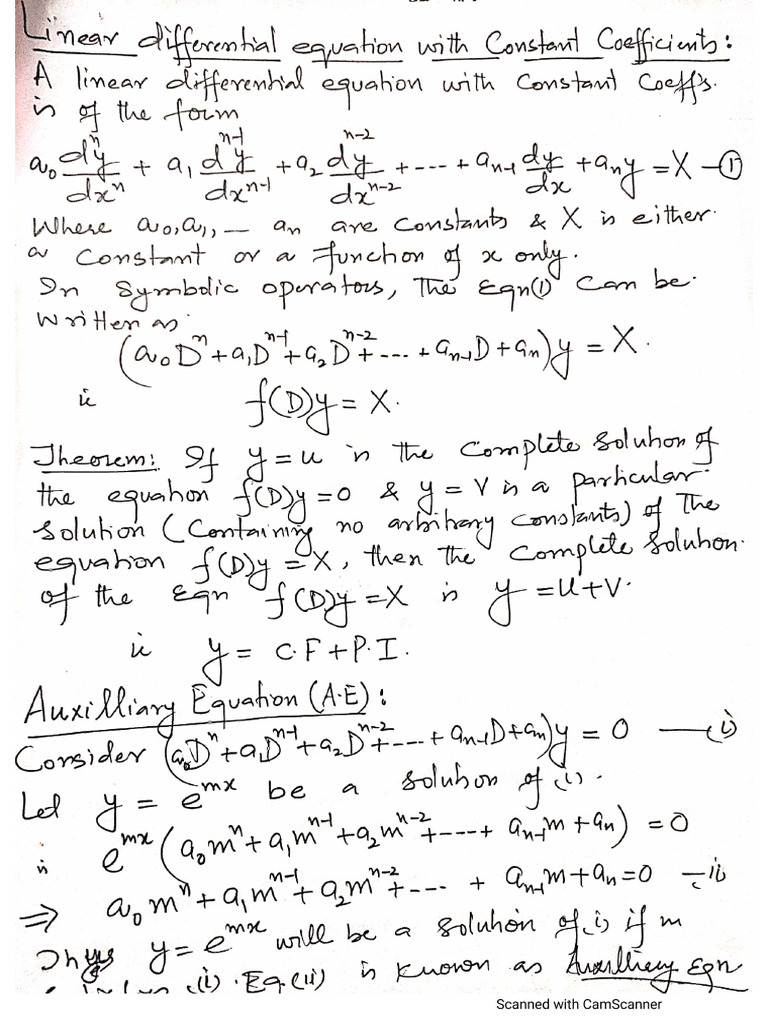 Linear differential equation with Constant Coefficients:
A linear differential equation with Constant Coeffs.
is of the form
a₀ dⁿy/dxⁿ + a₁ dⁿ⁻¹y/dxⁿ⁻¹ + a₂ dⁿ⁻²y/dxⁿ⁻² + ---- + aₙ₋₁ dy/dx + aₙy = X —①
Where a₀, a₁, — aₙ are constants & X is either
a constant or a function of x only.
In Symbolic operators, The Eqn① can be
written as
(a₀Dⁿ + a₁Dⁿ⁻¹ + a₂Dⁿ⁻² + ---- + aₙ₋₁D + aₙ)y = X.
ie f(D)y = X.
Theorem: If y = u is the complete solution of
the equation f(D)y = 0 & y = V is a particular
solution (Containing no arbitrary constants) of The
equation f(D)y = X, then the complete solution
of the Eqn f(D)y = X is y = u+v.
ie y = C.F + P.I.
Auxilliary Equation (A.E) :
Consider (a₀Dⁿ + a₁Dⁿ⁻¹ + a₂Dⁿ⁻² + ---- + aₙ₋₁D + aₙ)y = 0 —(i)
Let y = eᵐˣ be a solution of (i).
is eᵐˣ (a₀mⁿ + a₁mⁿ⁻¹ + a₂mⁿ⁻² + ---- + aₙ₋₁m + aₙ) = 0
⇒ a₀mⁿ + a₁mⁿ⁻¹ + a₂mⁿ⁻² + ---- + aₙ₋₁m + aₙ = 0 —ii
Thus y = eᵐˣ will be a solution of (i) if m
(i). Eq.(ii) is known as Auxilliary Eqn
Scanned with CamScanner